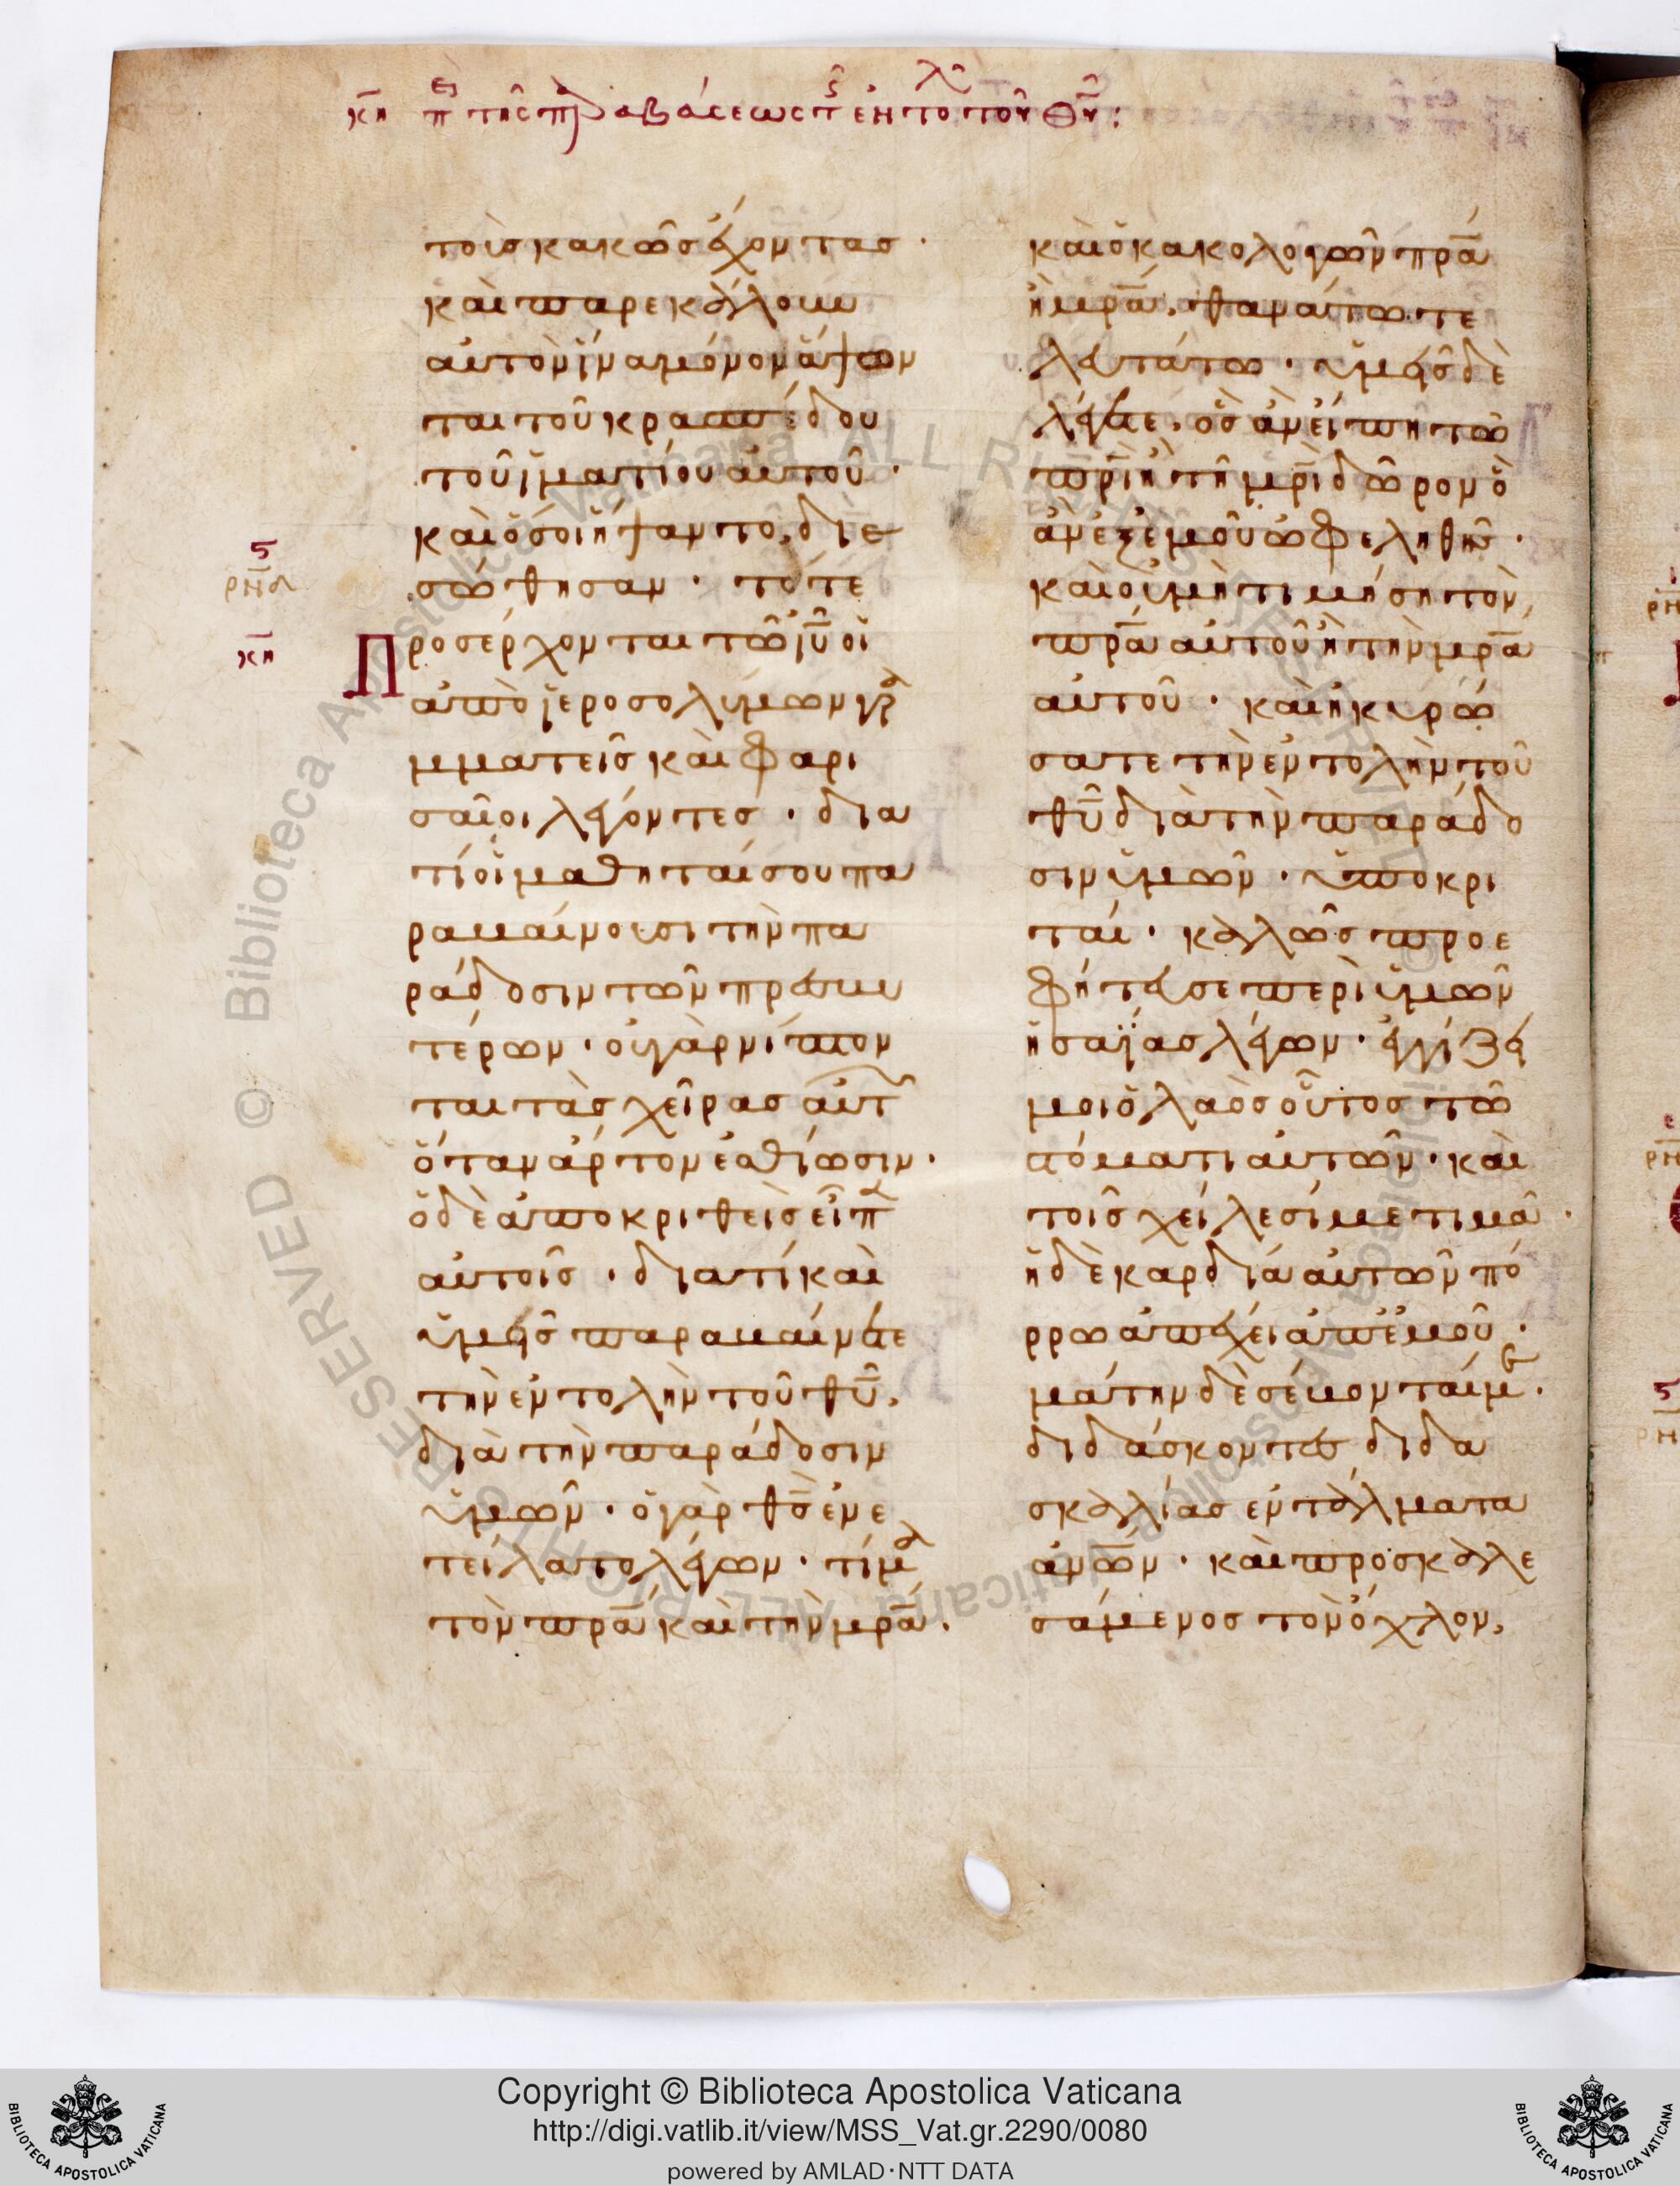 κη περ της παραβασεως των εντολ του θυ:
τοὺσ κακῶσ ἔχοντασ·
καὶ παρεκάλουν
αὐτὸν ἵνα μόνον ἅψων
ται τοῦ κρασπέδου
τοῦ ἱματίου αὐτοῦ·
καὶ ὅσοι ἥψαντο, διε
σώθησαν· τότε
Προσέρχονται τῶ ιυ οἱ
ἀπὸ ἱεροσολύμων γρα
μματεῖσ καὶ φαρι
σαῖοι λέγοντεσ· δια
τί οἱ μαθηταί σου πα
ραβαίνουσι τὴν πα
ράδοσιν τῶν πρεσβυ
τέρων· οὐ γὰρ νίπτον
ται τὰσ χεῖρασ αὐτ
ὅταν ἄρτον ἐσθίωσιν·
ὁ δὲ ἀποκριθεὶσ εἶπ
αὐτοῖσ· διατί καὶ
ὑμεῖσ παραβαίνετε
τὴν ἐντολὴν τοῦ θυ,
διὰ τὴν παράδοσιν
ὑμῶν· ὁ γὰρ θσ ἐνε
τείλατο λέγων· τίμα
τὸν πρα καὶ τὴν μρα.
ϛ
ρνδ
κη
καὶ ὁ κακολογῶν πρα
ἢ μρα, θανάτω τε
λευτάτω· ὑμεῖσ δὲ
λέγετε, ὃσ ἂν εἴπη τῶ
πρι ἢ τῆ μρι δῶρον ὃ
ἂν ἐξ ἐμοῦ ὠφεληθῆσ·
καὶ οὐ μὴ τιμήση τὸν
πρα αὐτοῦ ἢ τὴν μρα
αὐτοῦ· καὶ ἠκυρώ
σατε τὴν ἐντολὴν τοῦ
θυ διὰ τὴν παράδο
σιν ὑμῶν· ὑποκρι
ταί· καλῶσ προε
φήτευσε περὶ ὑμῶν
ἠσαΐασ λέγων· ἐγγίζει
μοι ὁ λαὸσ οὗτοσ τῶ
στόματι αὐτῶν· καὶ
τοῖσ χείλεσί με τιμᾶ·
ἡ δὲ καρδία αὐτῶν πό
ρρω ἀπέχει ἀπ' ἐμοῦ·
μάτην δὲ σέβονταί με·
διδάσκοντεσ διδα
σκαλίασ ἐντάλματα
ανων· καὶ προσκαλε
σάμενοσ τὸν ὄχλον,
Copyright © Biblioteca Apostolica Vaticana
http://digi.vatlib.it/view/MSS_Vat.gr.2290/0080
powered by AMLAD·NTT DATA
BIBLIOTECA APOSTOLICA VATICANA
BIBLIOTECA APOSTOLICA VATICANA
© Biblioteca Apostolica Vaticana ALL RIGHTS RESERVED
© Biblioteca Apostolica Vaticana ALL RIGHTS RESERVED